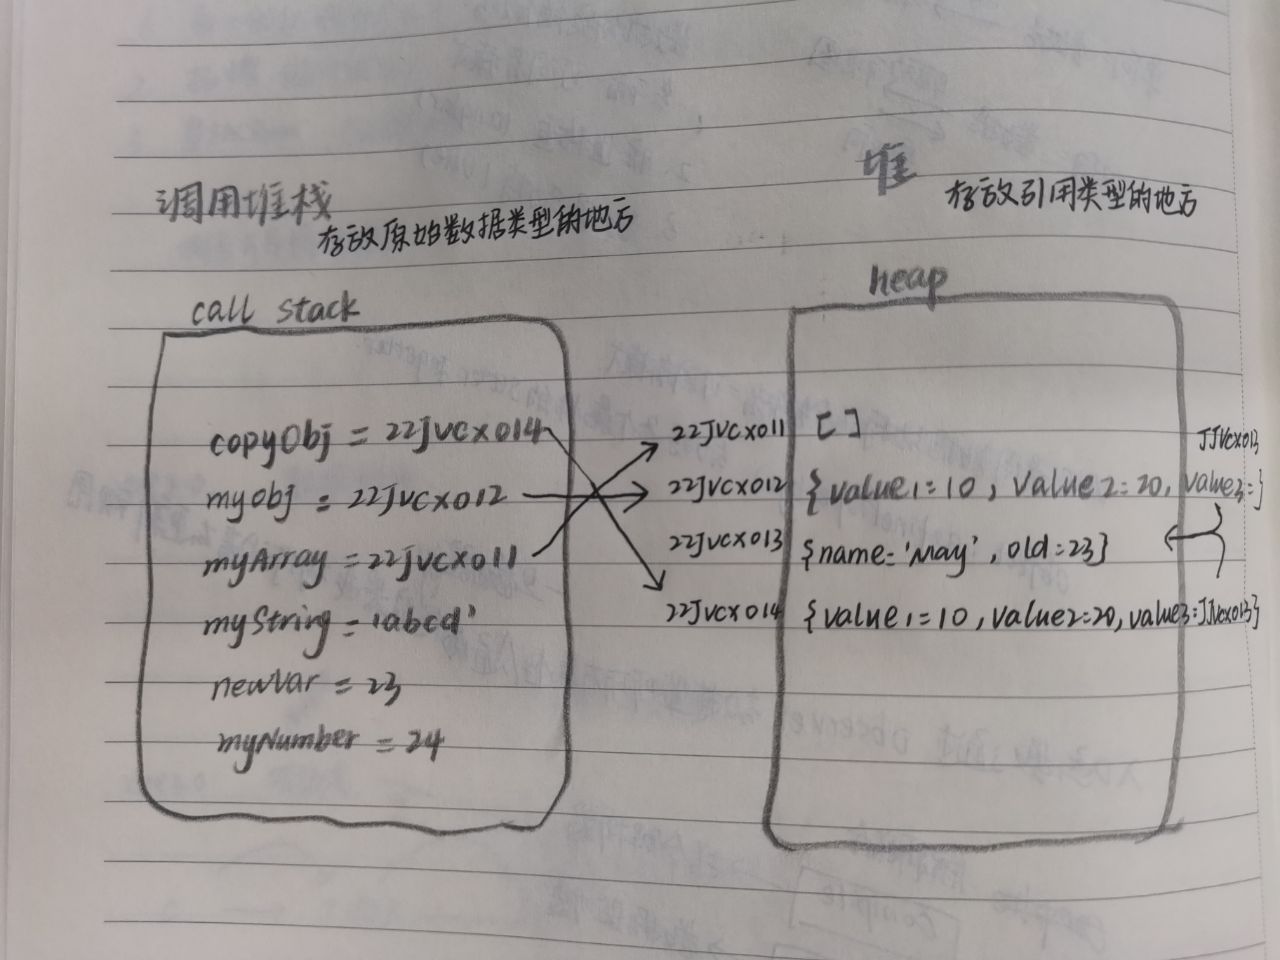 调用堆栈
存放原始数据类型的地方
call stack
copyObj = 22JVCX014
myobj = 22JVCX012
myArray = 22JVCX011
myString = 'abcd'
newVar = 23
myNumber = 24
堆
存放引用类型的地方
heap
22JVCX011 []
JJVCX013
22JVCX012 {value1=10, value2=20, value3=}
22JVCX013 {name='May', old=23}
22JVCX014 {value1=10, value2=20, value3=JJVCX013}